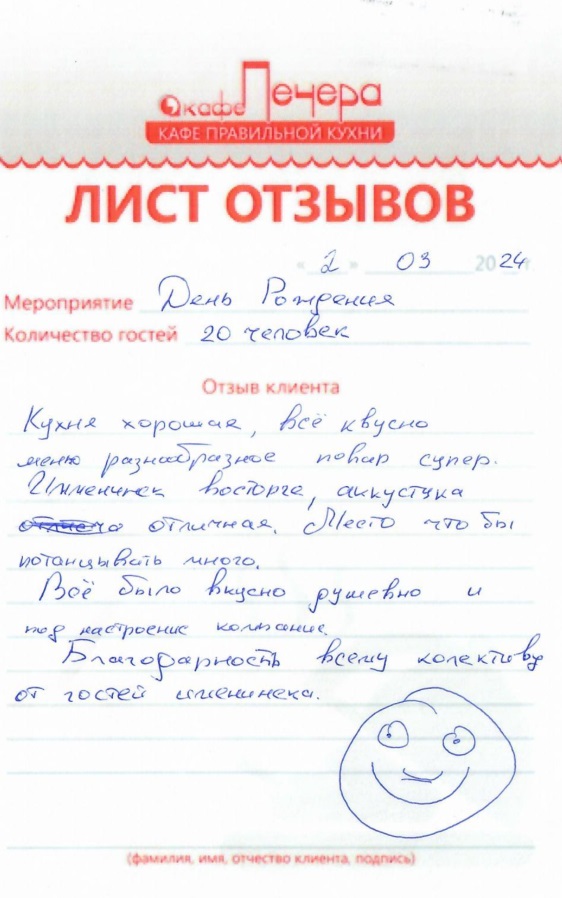 кафе Печера
КАФЕ ПРАВИЛЬНОЙ КУХНИ
ЛИСТ ОТЗЫВОВ
« 2 » 03 2024 г
Мероприятие День Рождения
Количество гостей 20 человек
Отзыв клиента
Кухня хорошая, всё квусно
меню разнообразное повар супер.
Имменинек восторге, аккустука
отличная. Место что бы
потанцывать много.
Всё было вкусно душевно и
под настроение компание.
Благодарность всему колективу
от гостей именинека.
(фамилия, имя, отчество клиента, подпись)